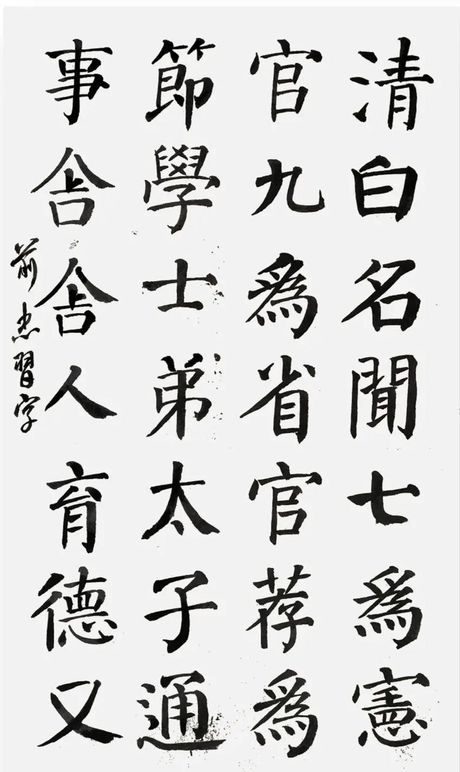 清白名聞七爲憲
官九爲省官荐爲
節學士弟太子通
事舍舍人育德又
前 習字